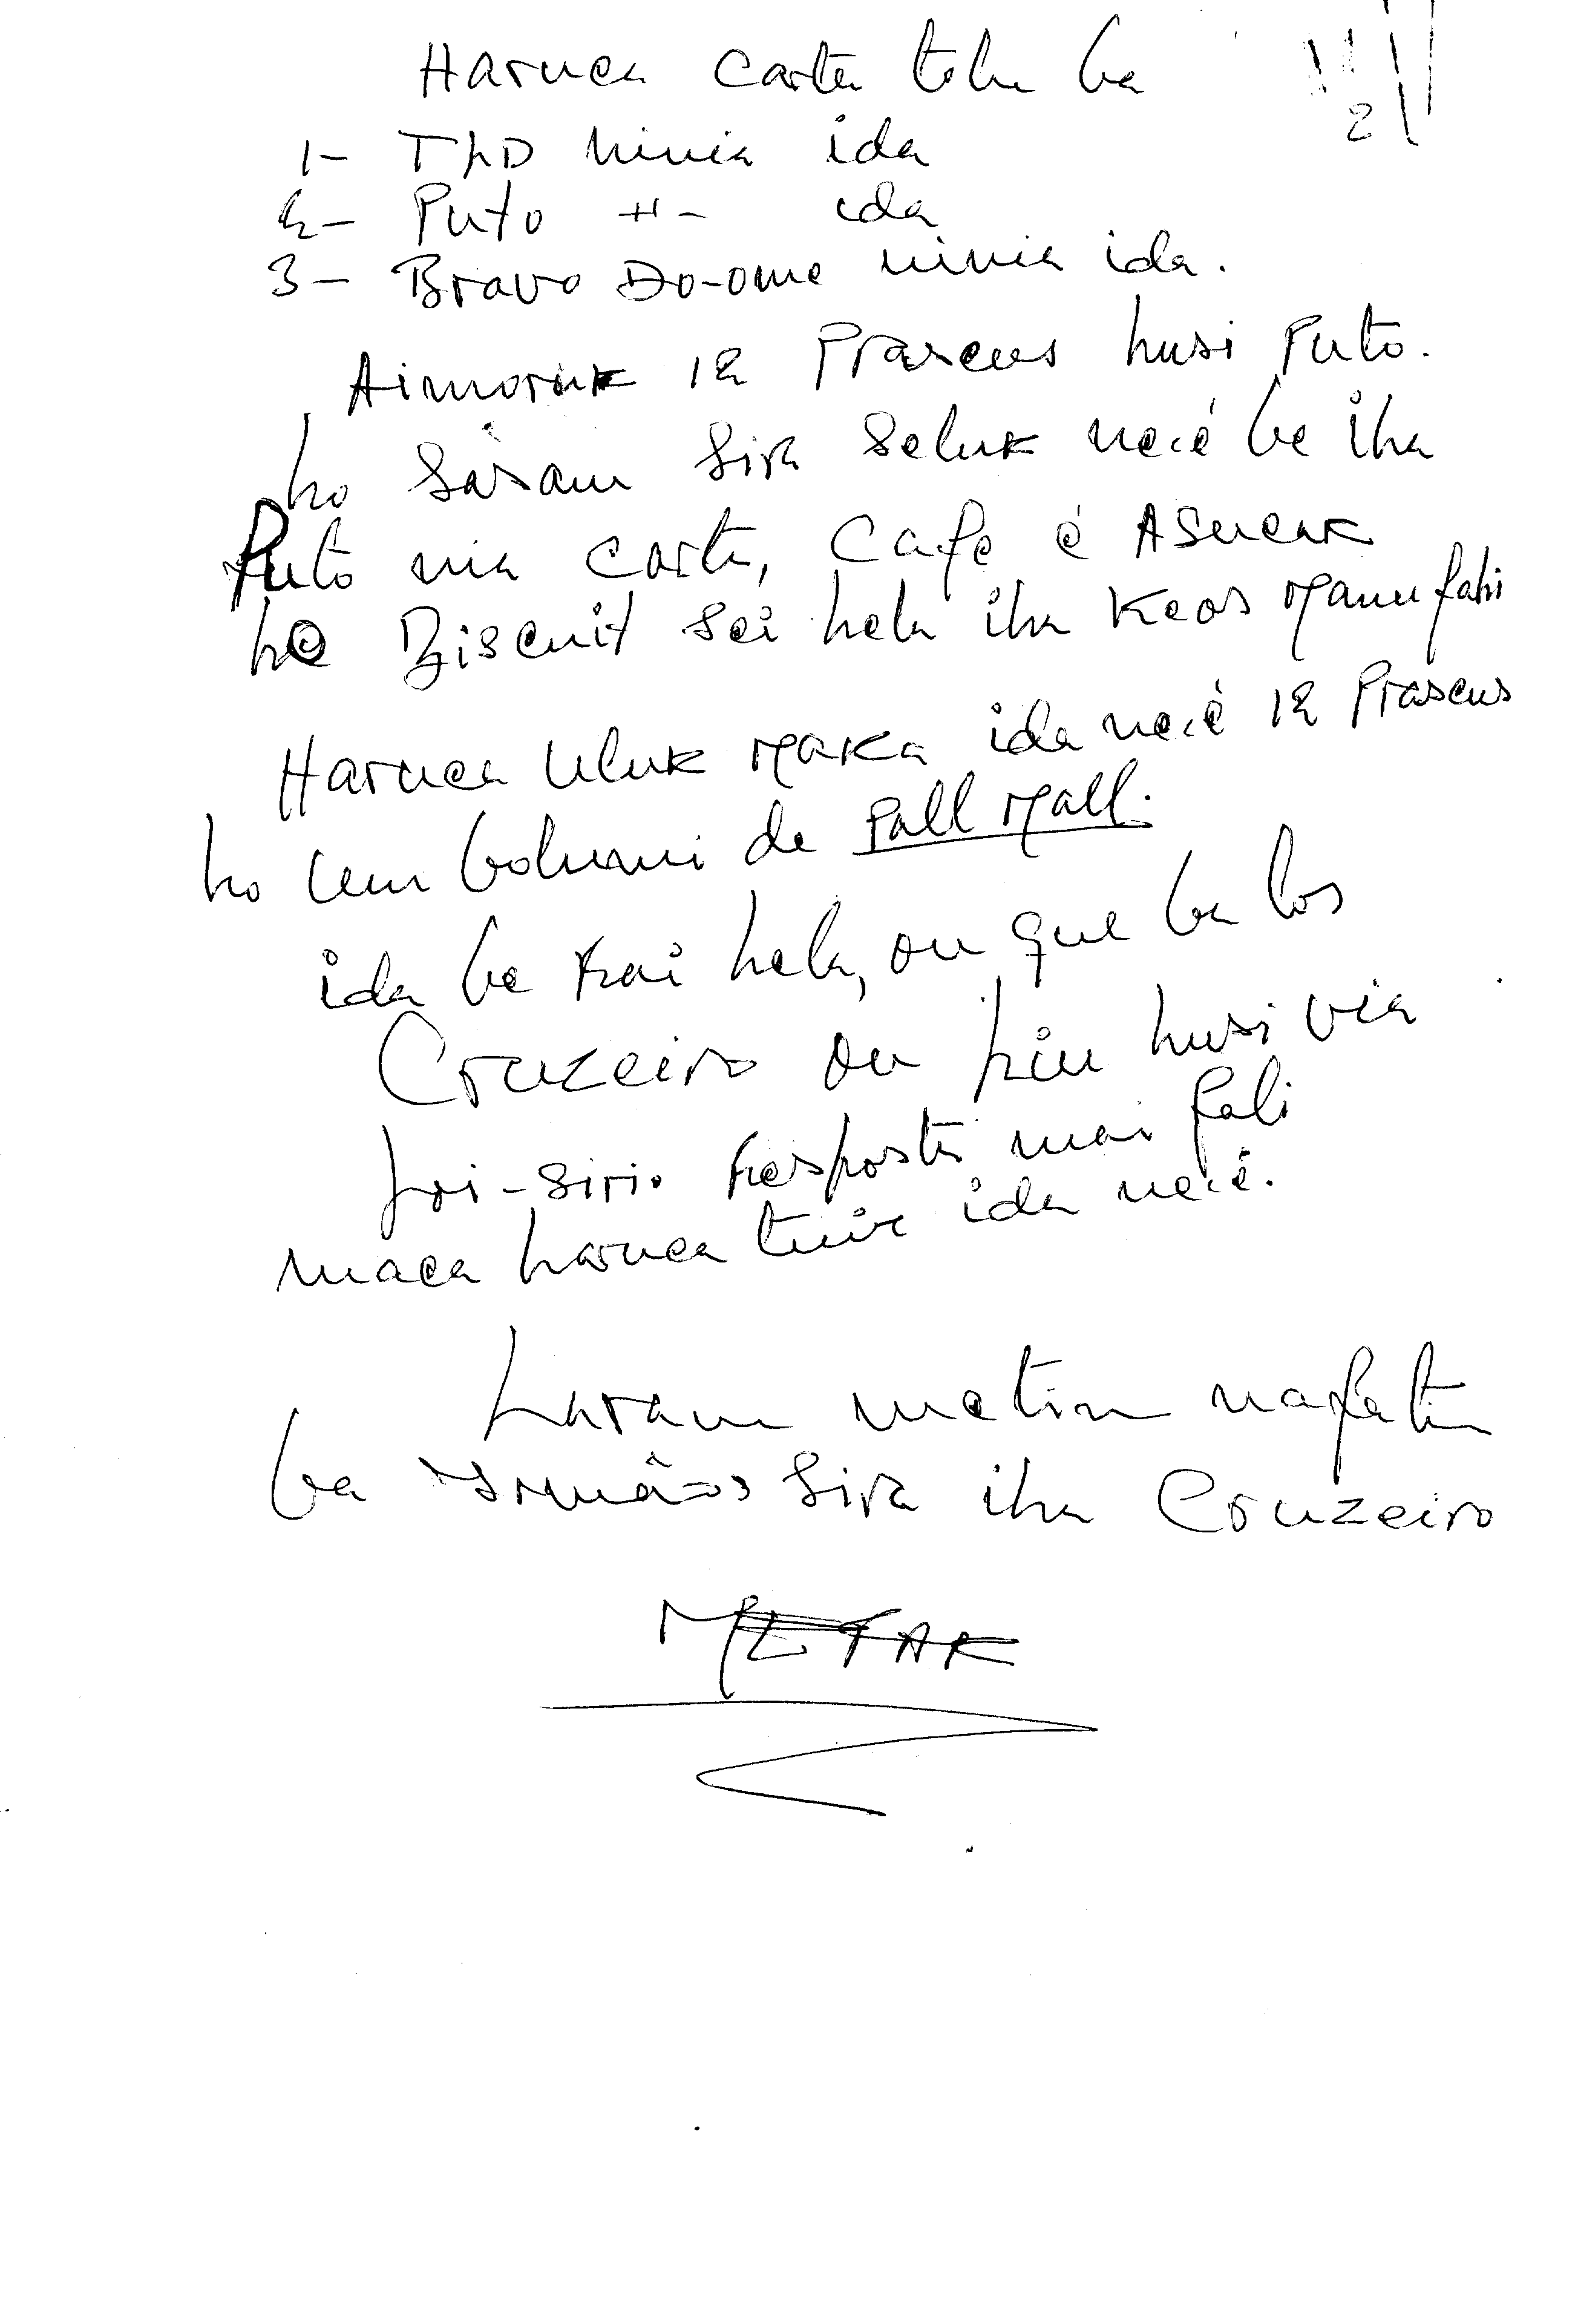 Haruca carta tolu ba
2
1- ninia ida
2- Puto -"- ida
3- Bravo Do-ome ninia ida.
Aimoruk 12 Frascus husi Puto.
ho Sasan Sira Seluk ne.é be iha
Puto nia carta, Cafe é Asucar
ho Biscuit sei hela iha Keos Manufahi
Haruca Uluk Maka ida ne.é 12 Frascus
ho lem bolumi de Pall Mall.
ida be hela, ou que ba los
Cruzeiro ou husi via
Resposta mai fali
maca haruca tuir ida ne.é.
Laran metin nafatin
ba Irmãos Sira iha Cruzeiro